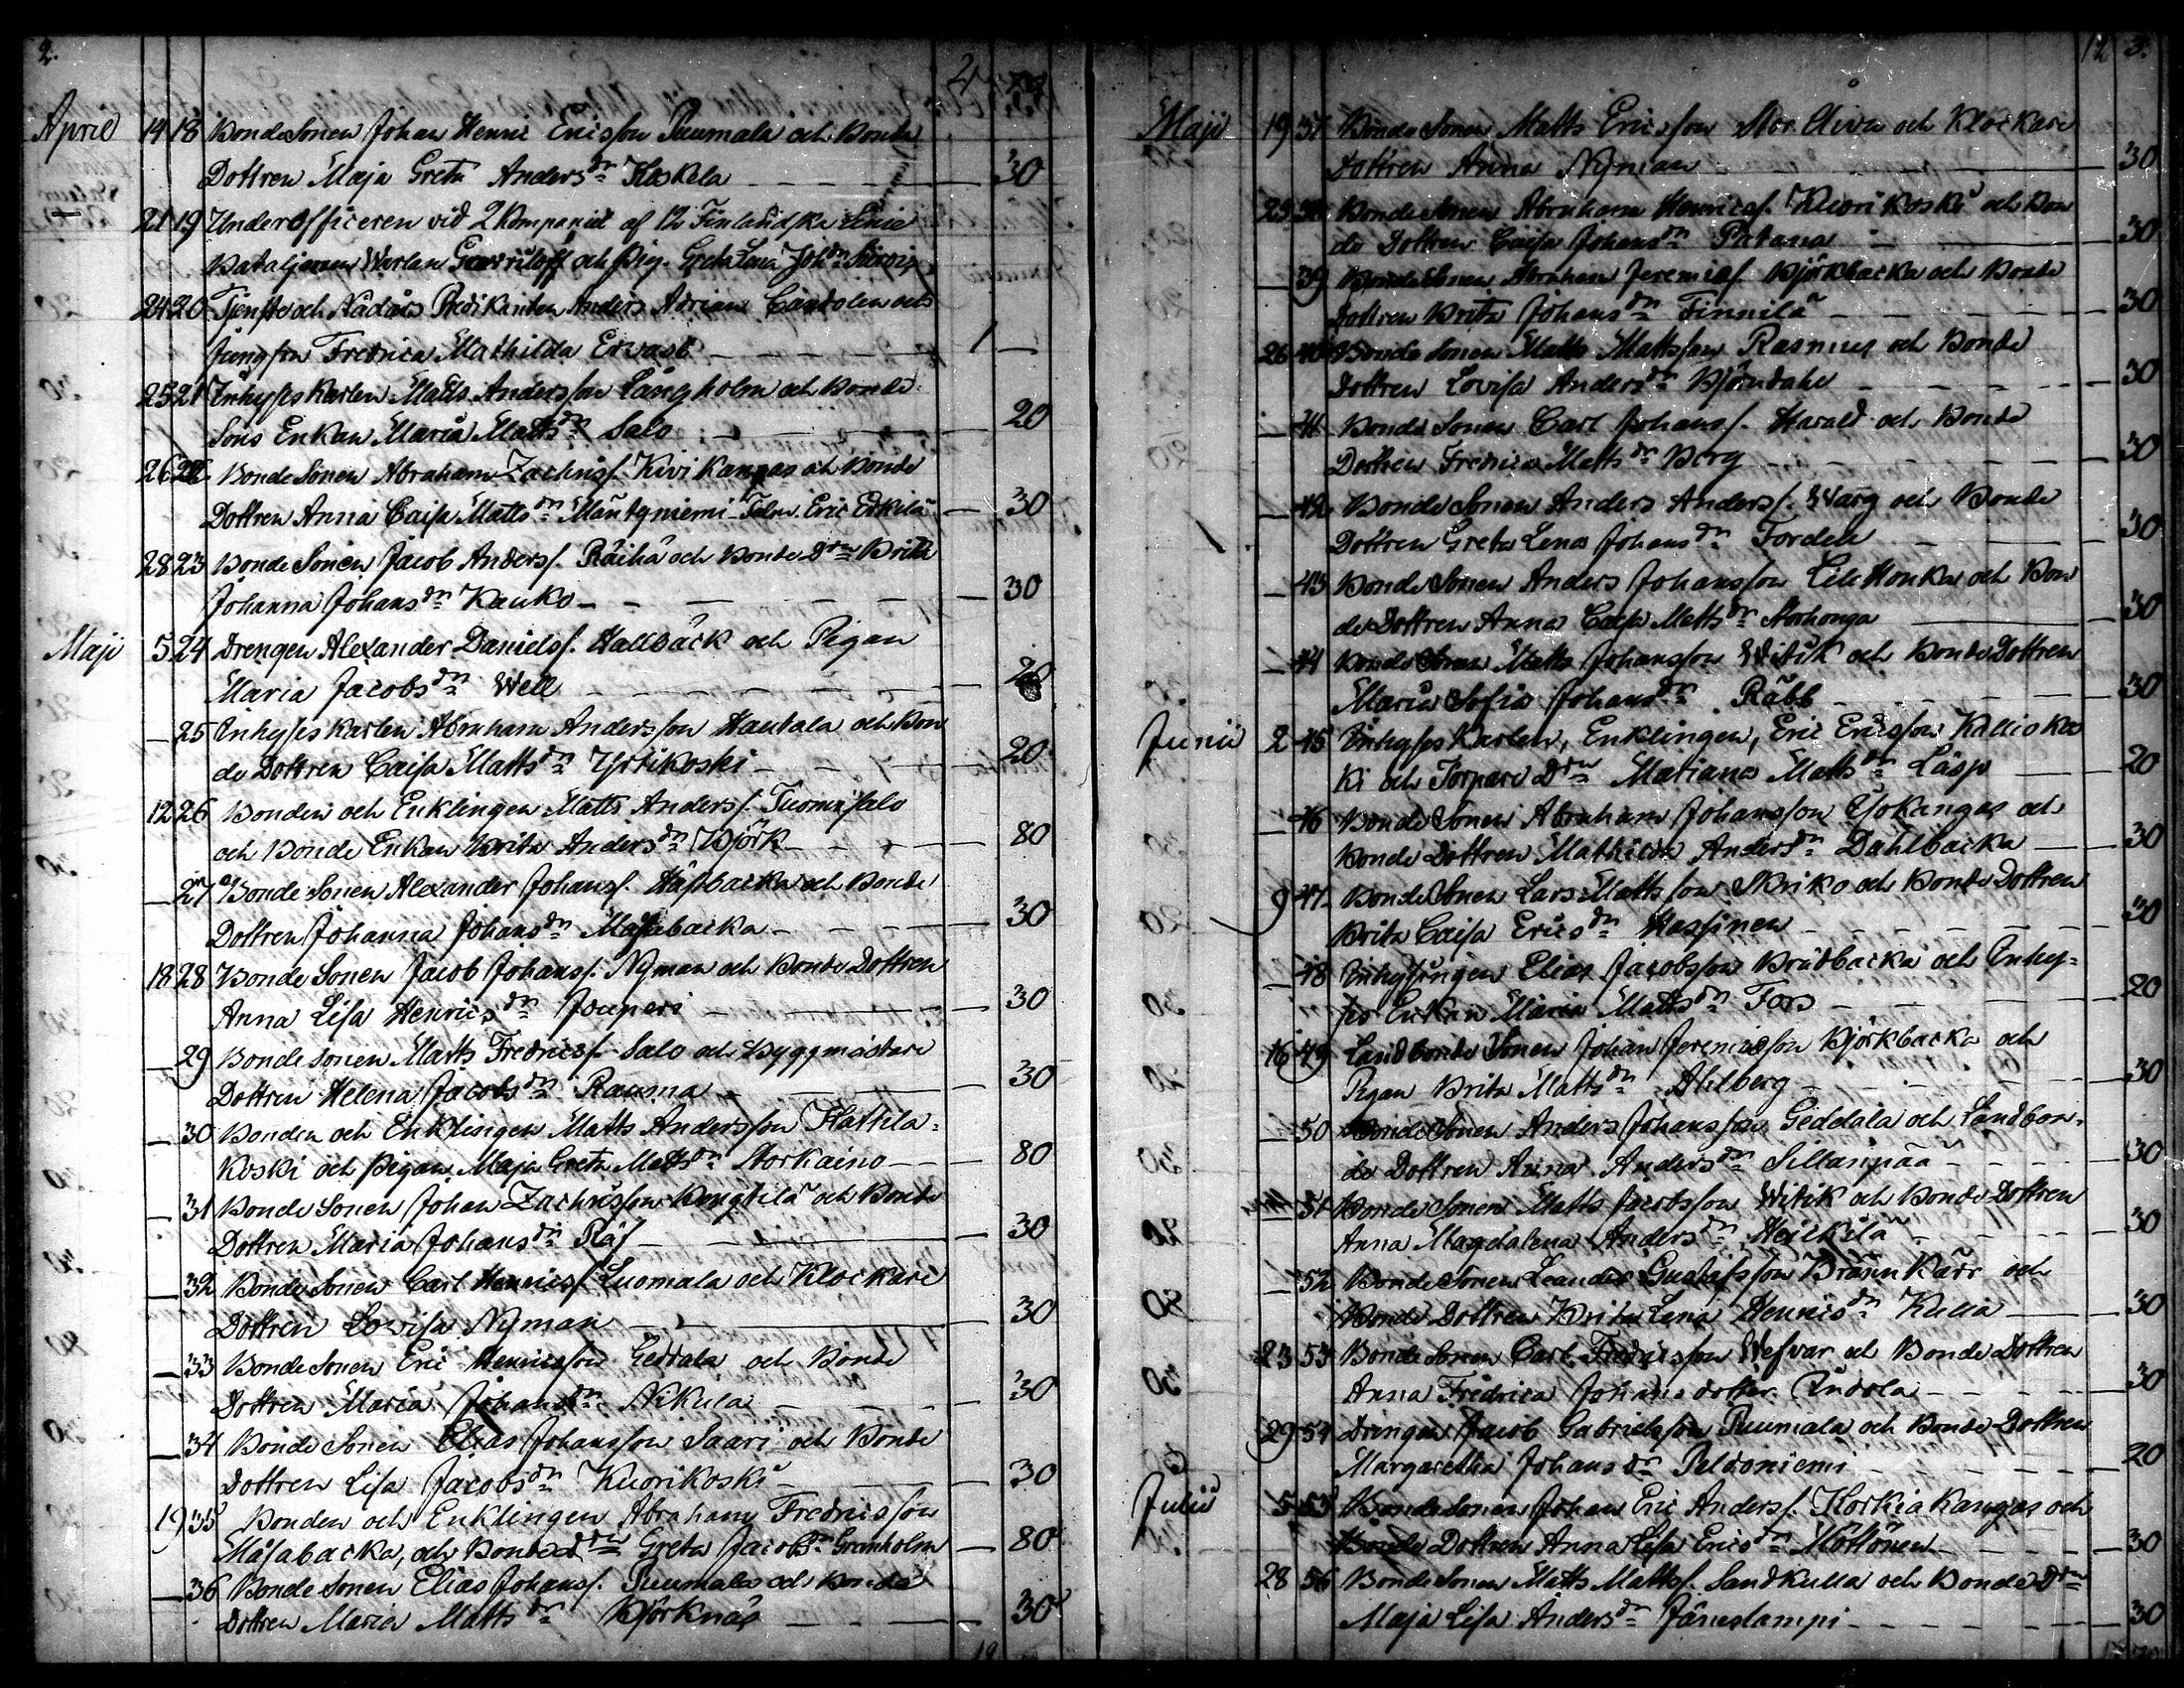 2.
2
April 14 18 BondeSonen Johan Henric Ericsson Puumala och Bonde
Dottren Maja Greta Andersdn Koskela 30
21 19 Underofficeren vid 2 Kompaniet af 12 Finlandska Linie
Bataljonen och Pig. Greta Lena Johdn
24 20 Tjenste och Nådårs Predikanten Anders Adrian och
Jungfru Fredrica Mathilda Ervast 1 —
25 21 Inhyses Karlen Matts Andersson Långholm och Bonde
Sons Enkan Maria Mattsdn Salo 20
26 22 BondeSonen Abraham Zachriss. Kivikangas och Bonde
Dottren Anna Caisa Mattsdn Mäntyniemi Eric Erkilä 30
28 23 BondeSonen Jacob Anderss. Räihä och Bonde Drn Brita
Johanna Johansdn Kauko 30
Maji 5 24 Drengen Alexander Danielss. Hallbäck och Pigan
Maria Jacobsdn Well 20
— 25 Inhyses Karlen Abraham Andersson Hautala och Bon
de Dottren Caisa Mattsdn Yrtikoski 20
12 26 Bonden och Enklingen Matts Anderss. Tuomisalo
och Bonde Enkan Brita Andersdn Björk 80
— 27 BondeSonen Alexander Johanss. Häsbacka och Bonde
Dottren Johanna Johansdn Måsabacka 30
18 28 Bonde Sonen Jacob Johanss. Nyman och Bonde Dottren
Anna Lisa Henricsdn Jouperi 30
— 29 Bonde Sonen Matts Fredricss. Salo och Byggmästare
Dottren Helena Jacobsdn Rauma 30
— 30 Bonden och Enklingen Matts Andersson Kattila-
koski och Pigan Maja Greta Mattsdn Storkaino 80
— 31 Bonde Sonen Johan Zachrisson Bengtilä och Bonde
Dottren Maria Johansdn Räf 30
— 32 Bonde Sonen Carl Henricss. Luomala och Klockare
Dottren Lovisa Nyman 30
— 33 Bonde Sonen Eric Henricsson Geddala och Bonde
Dottren Maria Johansdn Nikula 30
— 34 Bonde Sonen Elias Johansson Saari och Bonde
Dottren Lisa Jacobsdn Kuorikoski 30
19 35 Bonden och Enklingen Abraham Fredricsson
Måsabacka, och Bonde drn Greta Jacobsdn Granholm 80
— 36 Bonde Sonen Elias Johanss. Puumala och Bonde
Dottren Maria Mattsdn Björknäs 30
3.
Maji 19 37 Bonde Sonen Matts Ericsson Stor och Klockare
Dottren Anna Nyman 30
25 38 Bonde Sonen Abraham Henricss. Kuorikoski och Bon
de Dottren Caisa Johansdn Patana 30
— 39 Bonde Sonen Abraham Jeremiass. Björkbacka och Bonde
Dottren Brita Johansdn Finnilä 30
26 40 Bonde Sonen Matts Mattsson Rasmus och Bonde
Dottren Lovisa Andersdn Björndahl 30
— 41 Bonde Sonen Carl Johanss. Harald och Bonde
Dottren Fredrica Mattsdn Berg 30
— 42 Bonde Sonen Anders Anderss. Warg och Bonde
Dottren Greta Lena Johansdn Fordell 30
— 43 Bonde Sonen Anders Johansson Lill Honka och Bon
de Dottren Anna Caisa Mattsdn Storhonga 30
— 44 Bonde Sonen Matts Johansson Witick och Bonde Dottren
Maria Sofia Johansdn Räbb 30
Junii 2 45 Inhyses Karlen, Enklingen, Eric Ericsson Kallioko
ki och Torpare Drn Mariana Mattsdn Läsp 20
— 46 Bonde Sonen Abraham Johansson Isokangas och
Bonde Dottren Mathilda Andersdn Dahlbacka 30
9 47 Bonde Sonen Lars Mattsson Skriko och Bonde Dottren
Brita Caisa Ericsdn Hassinen 30
— 48 Inhysingen Elias Jacobsson Brudbacka och Inhy-
ses Enkan Maria Mattsdn Fors 20
16 49 Landbonde Sonen Johan Jeremiasson Björkbacka och
Pigan Brita Mattsdn Ahlberg 30
— 50 Bonde Sonen Anders Johansson Geddala och Landbon-
de Dottren Anna Andersdn Sillanpää 30
— 51 Bonde Sonen Matts Jacobsson Witik och Bonde Dottren
Anna Magdalena Andersdn Heickilä 30
— 52 Bonde Sonen Leander Gustafsson Brännkärr och
Bonde Dottren Brita Lena Henricsdn Kulla 30
23 53 Bonde Sonen Carl Fredricsson Wefvar och Bonde Dottren
Anna Fredrica Johans dotter Indola 30
29 54 Drengen Jacob Gabrielsson Puumala och Bonde Dottren
Margaretha Johansdn Peldoniemi 20
Julii 5 55 Bonde Sonen Johan Eric Anderss. Korkiakangas och
Bonde Dottren Anna Lisa Ericsdn Möttönen 30
28 56 Bonde Sonen Matts Mattss. Sandkulla och Bonde Drn
Maja Lisa Andersdn Jäneslampi 30